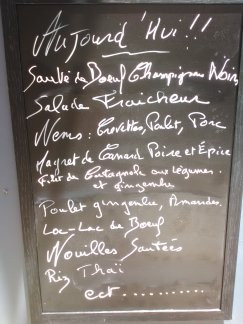 Aujourd'Hui !!!
Sauté de Boeuf Champignon Noirs
Salade Fraicheur
Nems : Crevettes, Poulet, Porc
Magret de Canard Poire et Épice
Filet de aux légumes.
et gingembre
Poulet gingembre, Amandes.
Loc-Lac de Boeuf
Nouilles Sautées
Riz Thaï
ect..........